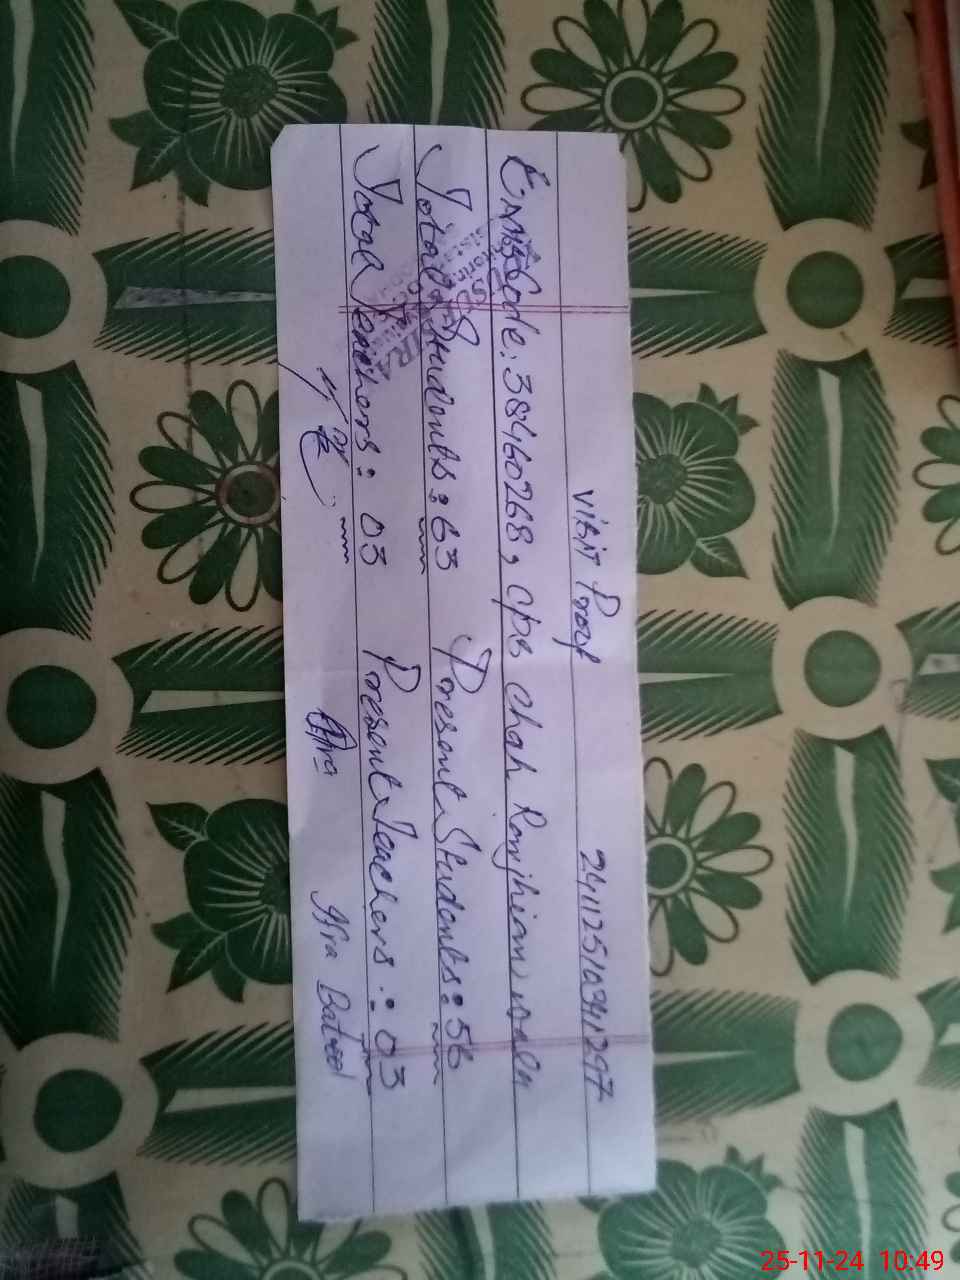 Visit Proof 241125103941297
EMIS Code: 38460268, CPS Chah Ranjhian wala
Total Students: 63 Present Students: 56
Total Teachers: 03 Present Teachers: 03
Afra Batool
25-11-24 10:49